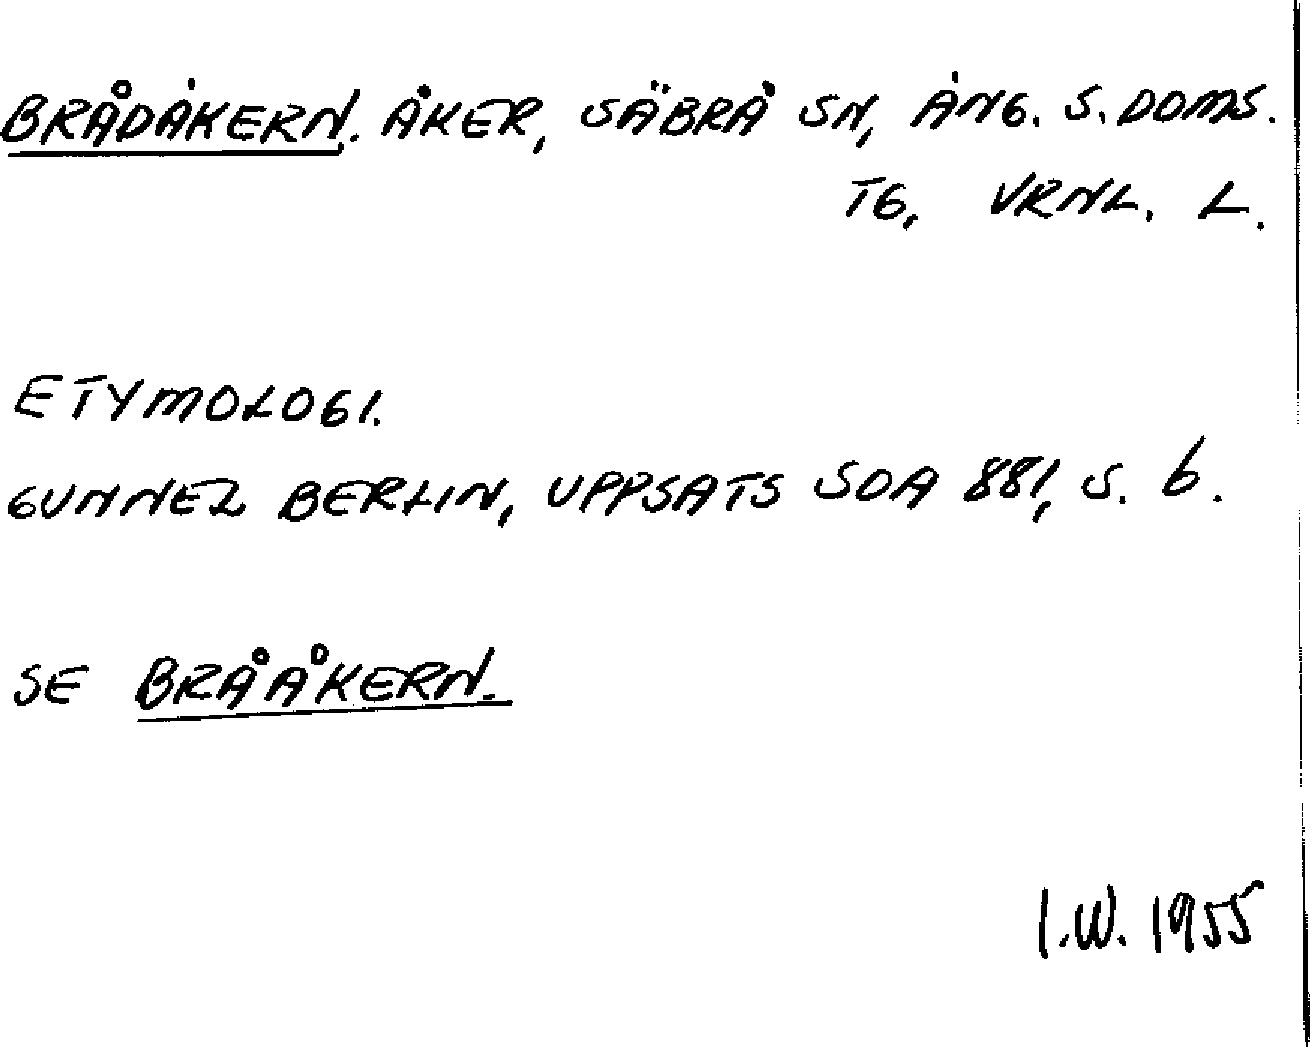 BRÅDÅKERN. ÅKER, SÄBRÅ SN, ÅNG. S. DOMS.
TG, VRNL. L.
ETYMOLOGI.
GUNNEL BERLIN, UPPSATS SOA 881, S. 6.
SE BRÅÅKERN.
I.W. 1955